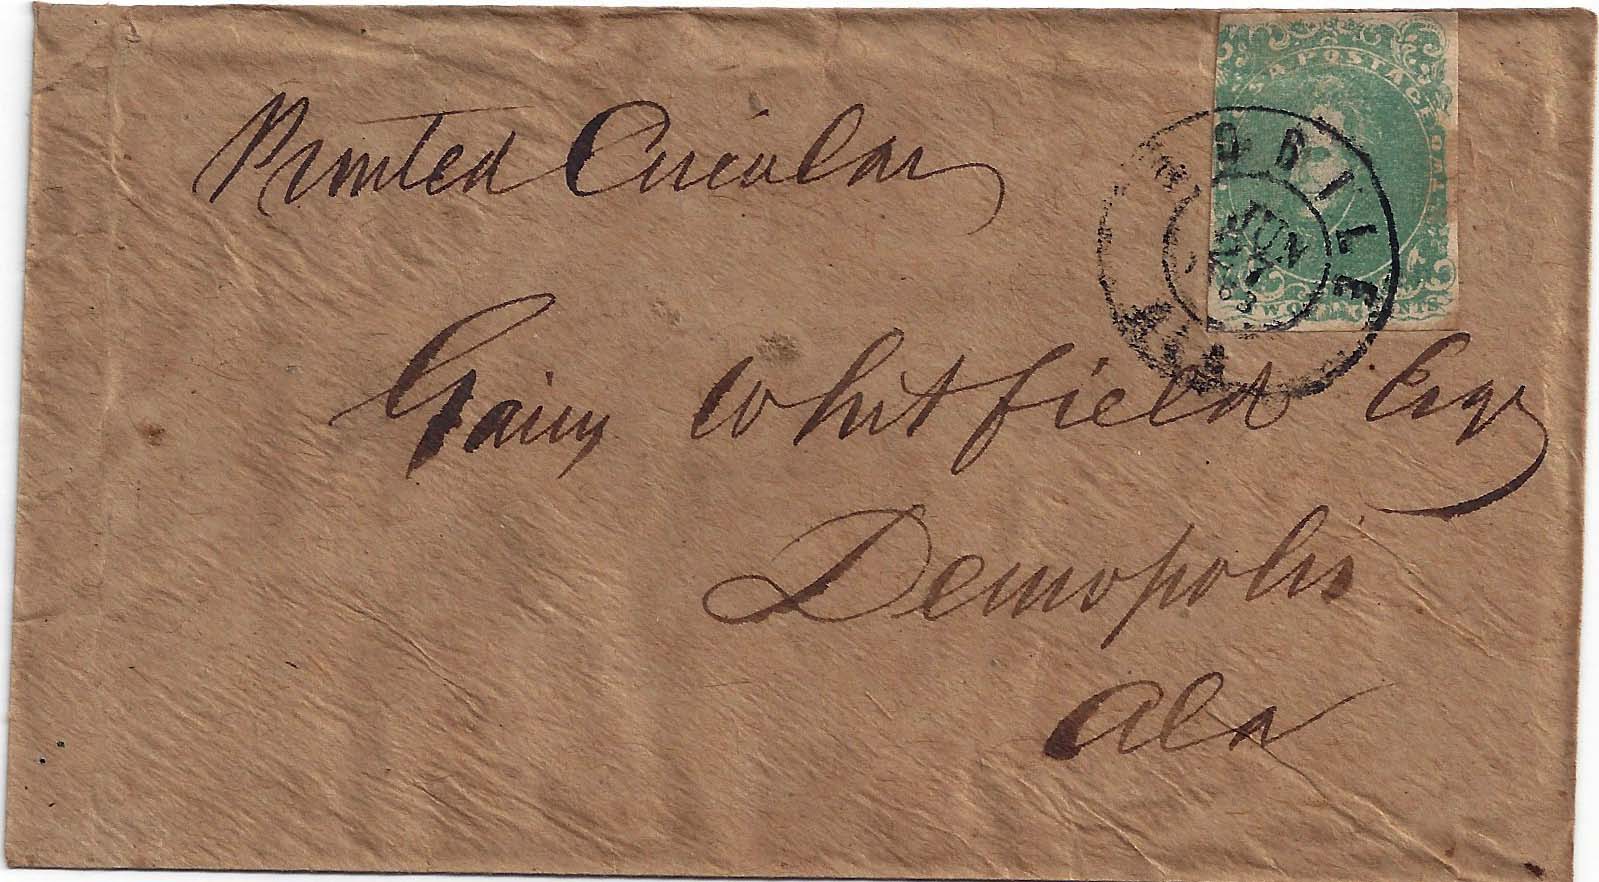 Printed Circular
C S A POSTAGE
TWO
TWO CENTS
MOBILE
JUN
63
ALA
Gaius Whitfield Esqr
Demopolis
Ala